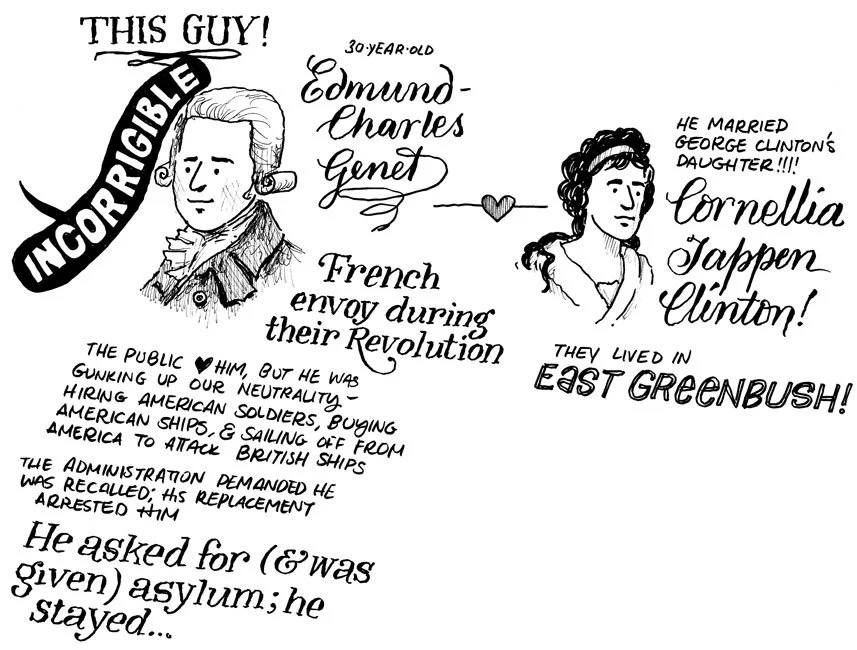 THIS GUY!
INCORRIGIBLE
30-YEAR-OLD
Edmund-
Charles
Genet
French
envoy during
their Revolution
HE MARRIED
GEORGE CLINTON'S
DAUGHTER!!!!
Cornellia
Tappen
Clinton!
THEY LIVED IN
EAST GREENBUSH!
THE PUBLIC ♥ HIM, BUT HE WAS
GUNKING UP OUR NEUTRALITY-
HIRING AMERICAN SOLDIERS, BUYING
AMERICAN SHIPS, & SAILING OFF FROM
AMERICA TO ATTACK BRITISH SHIPS
THE ADMINISTRATION DEMANDED HE
WAS RECALLED; HIS REPLACEMENT
ARRESTED HIM
He asked for (& was
given) asylum; he
stayed...